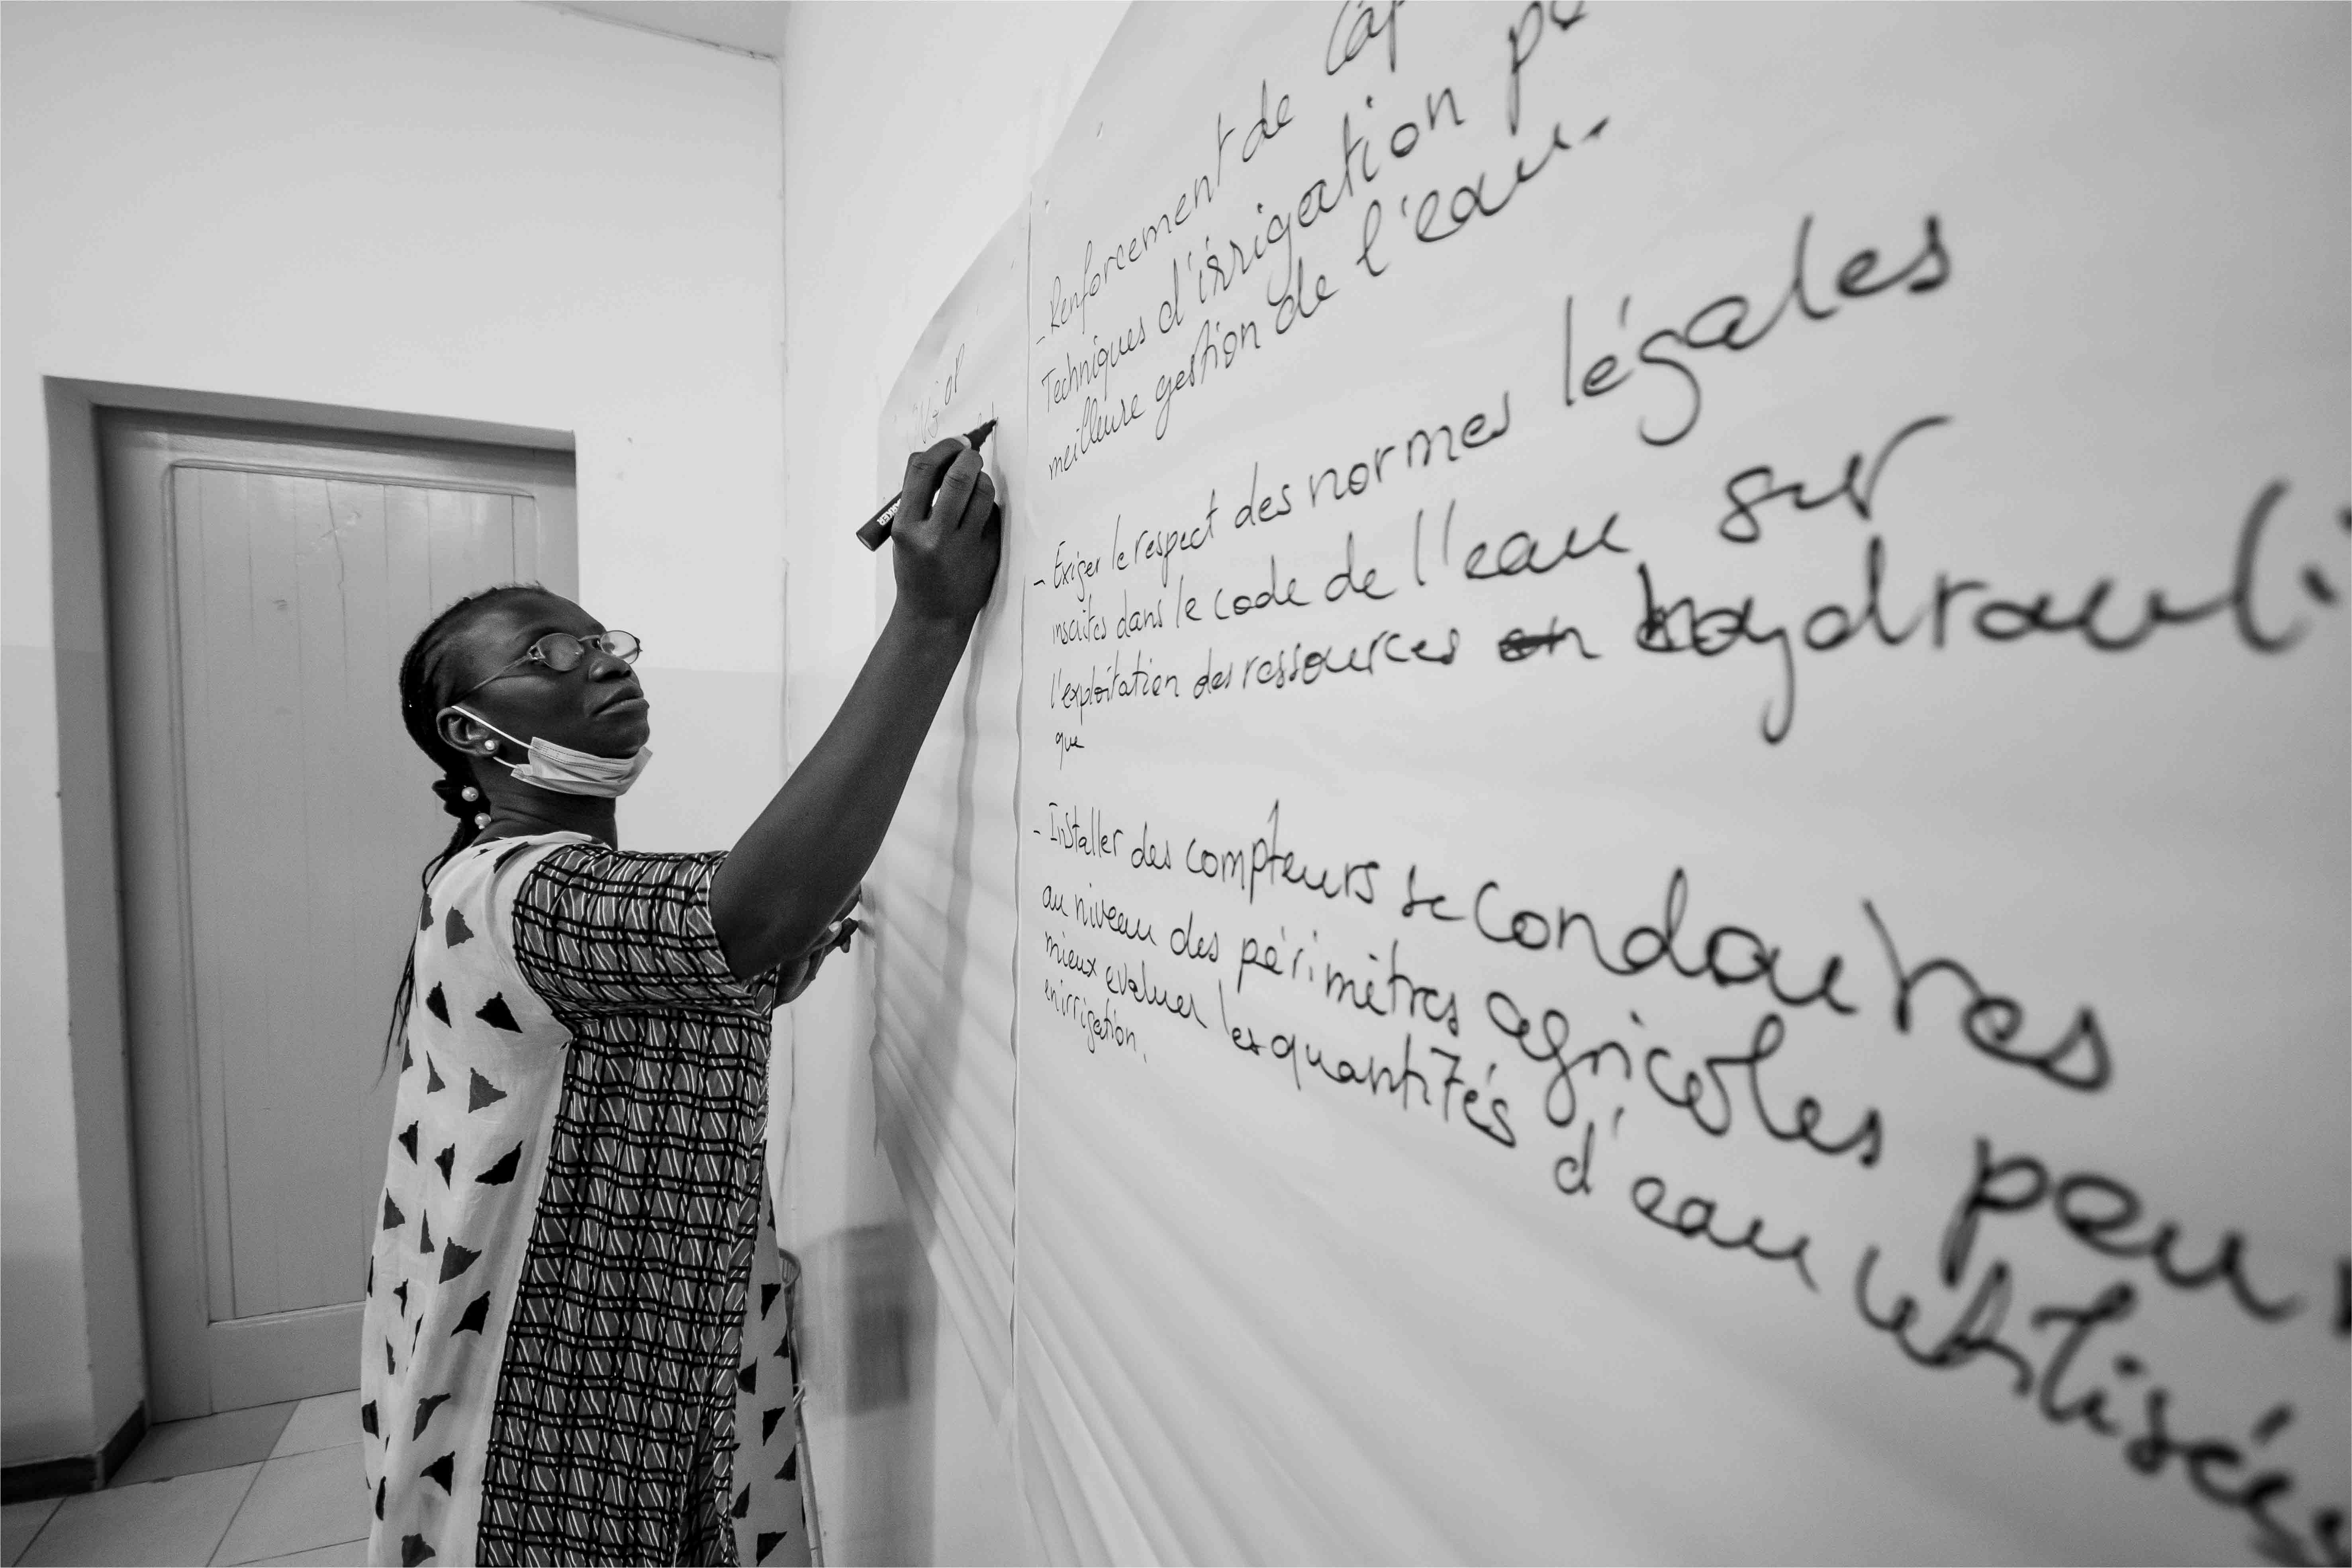 - Renforcement de
Techniques d'irrigation
meilleure gestion de l'eau.
- Exiger le respect des normes légales
inscrites dans le code de l'eau sur
l'exploitation des ressources hydrauli
que
- Installer des compteurs secondaires
au niveau des périmètres agricoles pour
mieux evaluer les quantités d'eau utilisées
en irrigation.